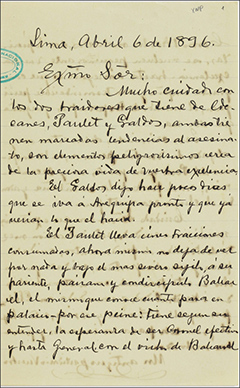 Lima, Abril 6 de 1896.
Exmo Sor:
Mucho cuidado con
los dos traidores que tiene de Ede-
canes, Paulet y Galdos, ambos tie-
nen marcadas tendencias al asesina-
to, son elementos peligrosisimos cerca
de la preciosa vida de vuestra excelencia.
El Galdos dijo hace pocos dias
que se iva a Arequipa pronto y que ya
verian lo que él haria.
El Paulet lleva cinco traiciones
consumadas, ahora mismo no deja de ver
por nata y bajo el mas severo sigilo, a su
pariente, paisano y condiscipulo Balca
el, el mismo que conoce cuanto pasa en
palacio por ese peine: tiene segun su
entender, la esperanza de ser Coronel efectivo
y hasta General con el